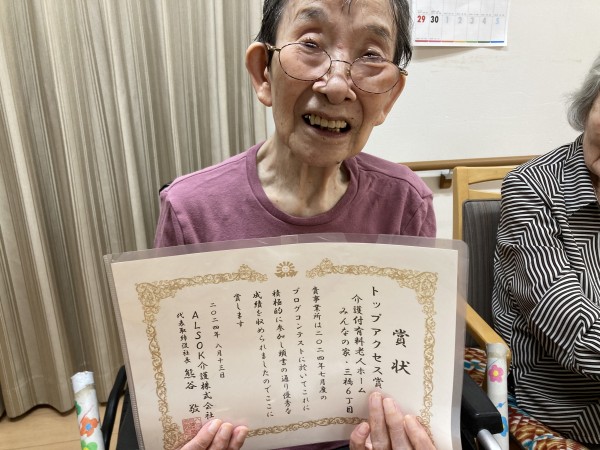 賞状
トップアクセス賞
介護付有料老人ホーム
みんなの家・三橋6丁目
貴事業所は二〇二四年七月度の
ブログコンテストに於いてこれに
積極的に参加し頭書の通り優秀な
成績を収められましたのでここに
賞します
二〇二四年 八月十三日
ALSOK介護株式会社
代表取締役社長 熊谷 敬
29 30 1 2 3 4 5